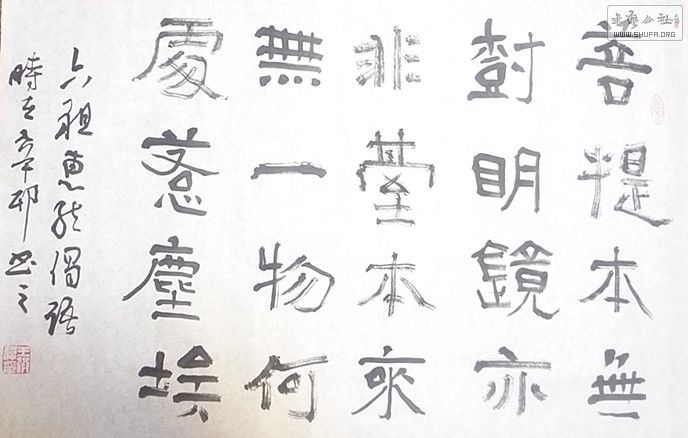 菩提本無
樹明鏡亦
非臺本來
無一物何
處惹塵埃
六祖惠能偈語
時在辛卯書之
書藝公社
WWW.SHUFA.ORG